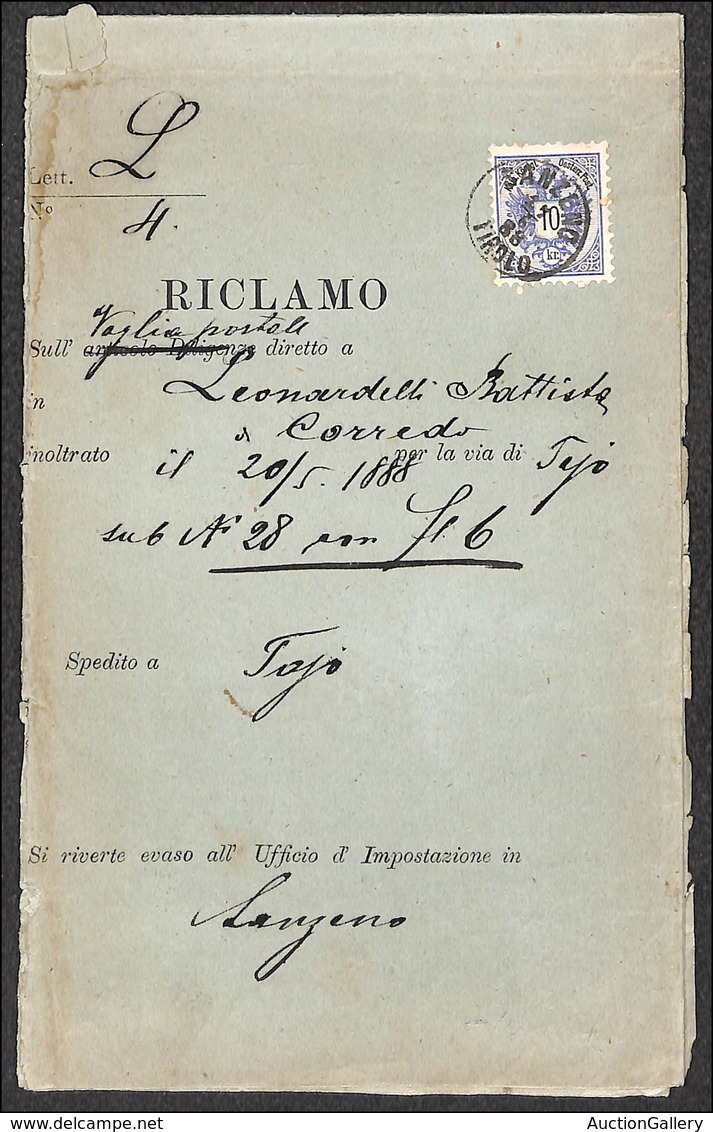 L
Lett.
No
4.
SANZENO
88
TIROLO
10
kr.
RICLAMO
Vaglia postale
Sull' articolo Diligenze diretto a
Leonardelli Battista
in
a Corredo
inoltrato il 20/5. 1888 per la via di Tajo
sub No 28 con fl. 6
Spedito a Tajo
Si riverte evaso all' Ufficio d' Impostazione in
Sanzeno
AuctionGallery